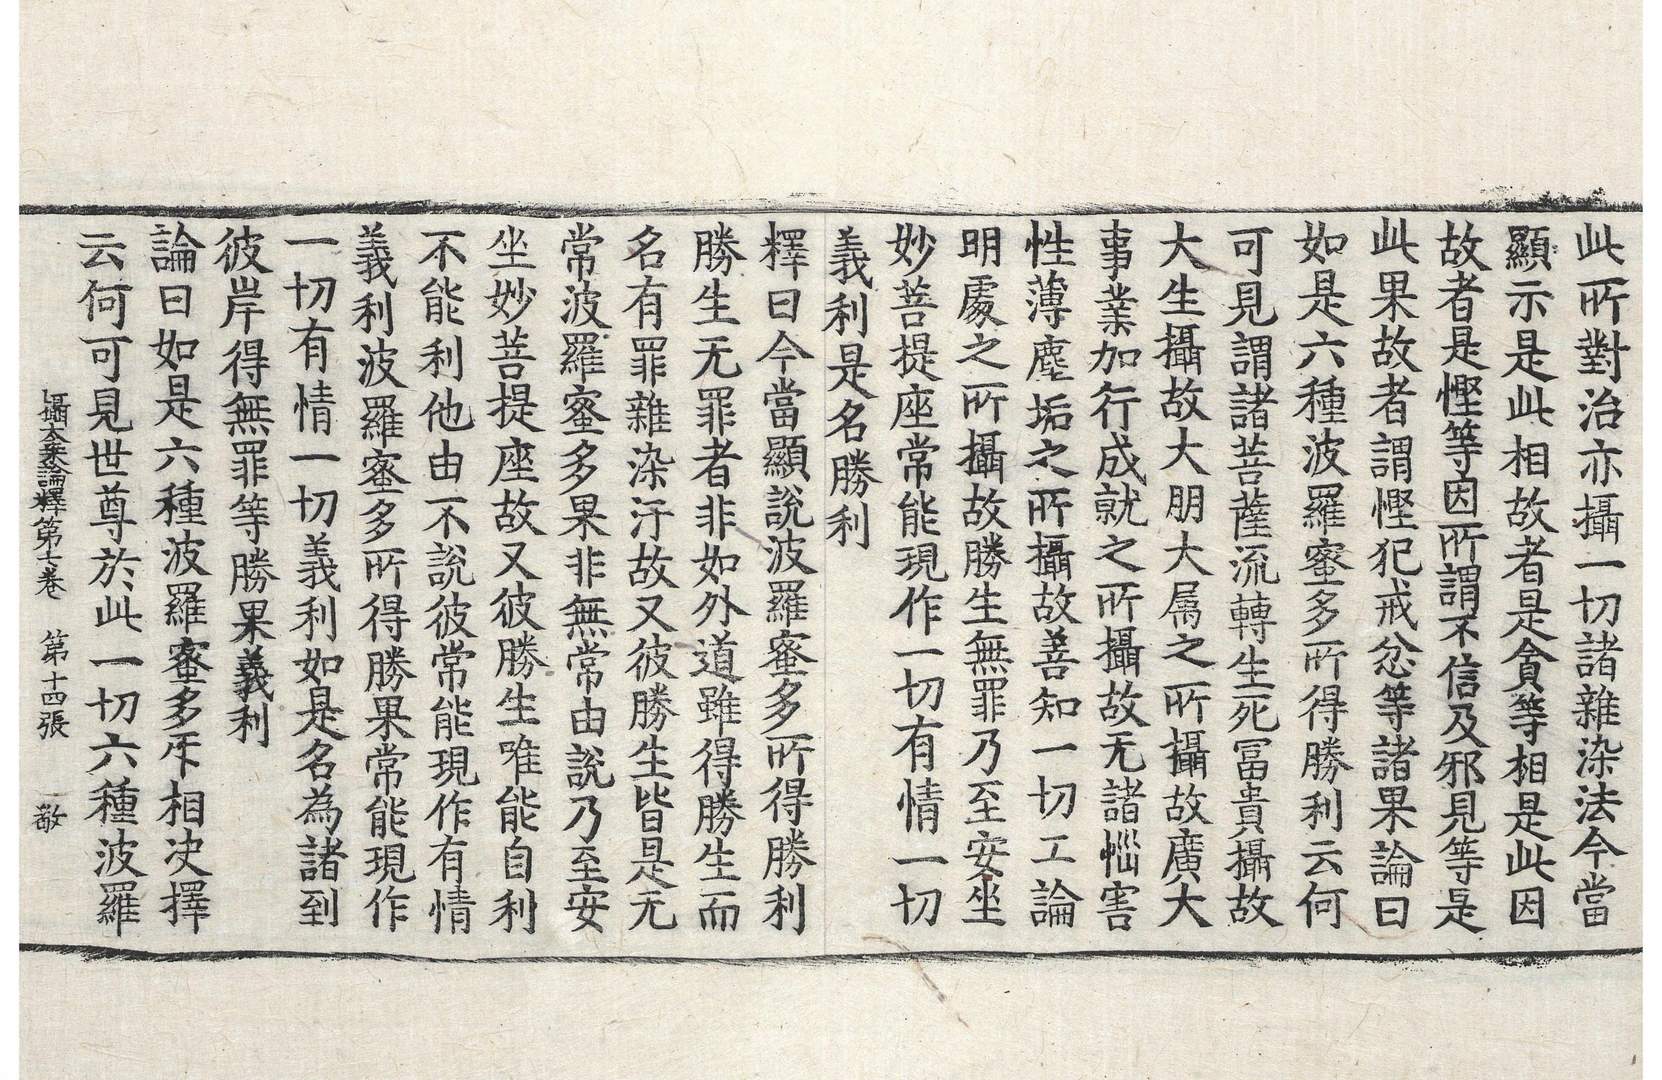 此所對治亦攝一切諸雜染法今當
顯示是此相故者是貪等相是此因
故者是慳等因所謂不信及邪見等是
此果故者謂慳犯戒忿等諸果論曰
如是六種波羅蜜多所得勝利云何
可見謂諸菩薩流轉生死冨貴攝故
大生攝故大朋大属之所攝故廣大
事業加行成就之所攝故无諸惱害
性薄塵垢之所攝故善知一切工論
明處之所攝故勝生無罪乃至安坐
妙菩提座常能現作一切有情一切
義利是名勝利
釋曰今當顯說波羅蜜多所得勝利
勝生无罪者非如外道雖得勝生而
名有罪雜染汙故又彼勝生皆是无
常波羅蜜多果非無常由說乃至安
坐妙菩提座故又彼勝生唯能自利
不能利他由不說彼常能現作有情
義利波羅蜜多所得勝果常能現作
一切有情一切義利如是名為諸到
彼岸得無罪等勝果義利
論曰如是六種波羅蜜多互相决擇
云何可見世尊於此一切六種波羅
攝大乘論釋第七卷 第十四張